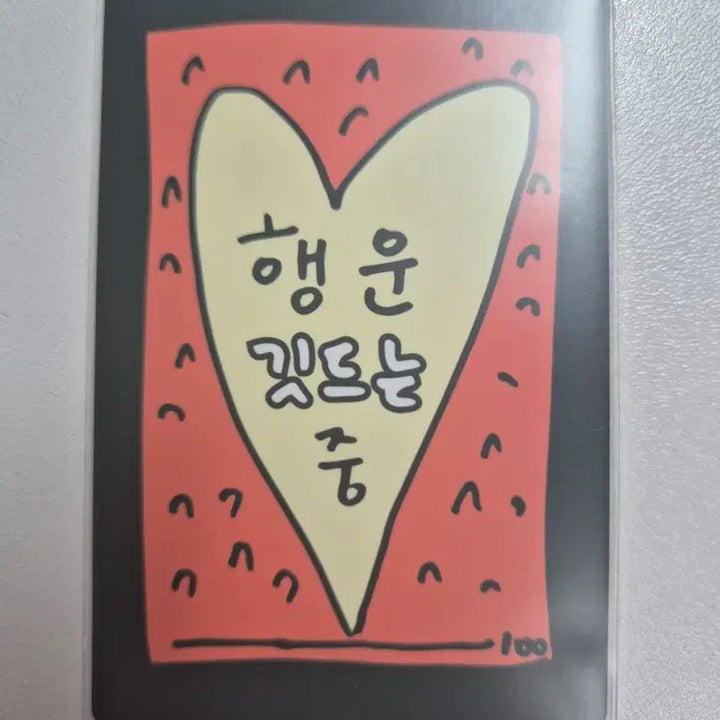 행운
깃드는
중
100